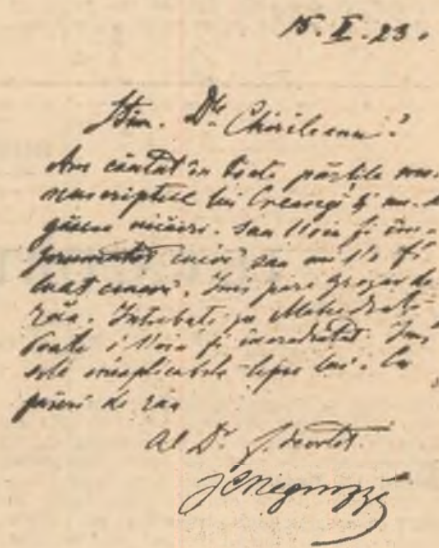 15. X. 23.
Stim. Dle Chirileanu!
Am căutat în toate părțile ma-
nuscriptele lui Creangă și nu-l
găsesc nicăiri. Sau l'oiu fi îm-
prumutat cuiva sau mi l'o fi
luat cineva. Îmi pare grozav de
rău. Întrebați pe Mehedinți
Poate i l'oiu fi încredințat. Îmi
este inexplicabilă lipsa lui. Cu
păreri de rău
al Dv. devotat
JCNegruzzi